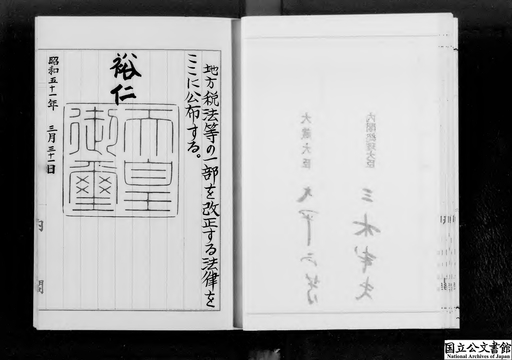 地方税法等の一部を改正する法律を
ここに公布する。
裕仁
天皇
御璽
昭和五十一年 三月三十一日
内閣
内閣総理大臣
三木武夫
大蔵大臣
大平正芳
国立公文書館
National Archives of Japan